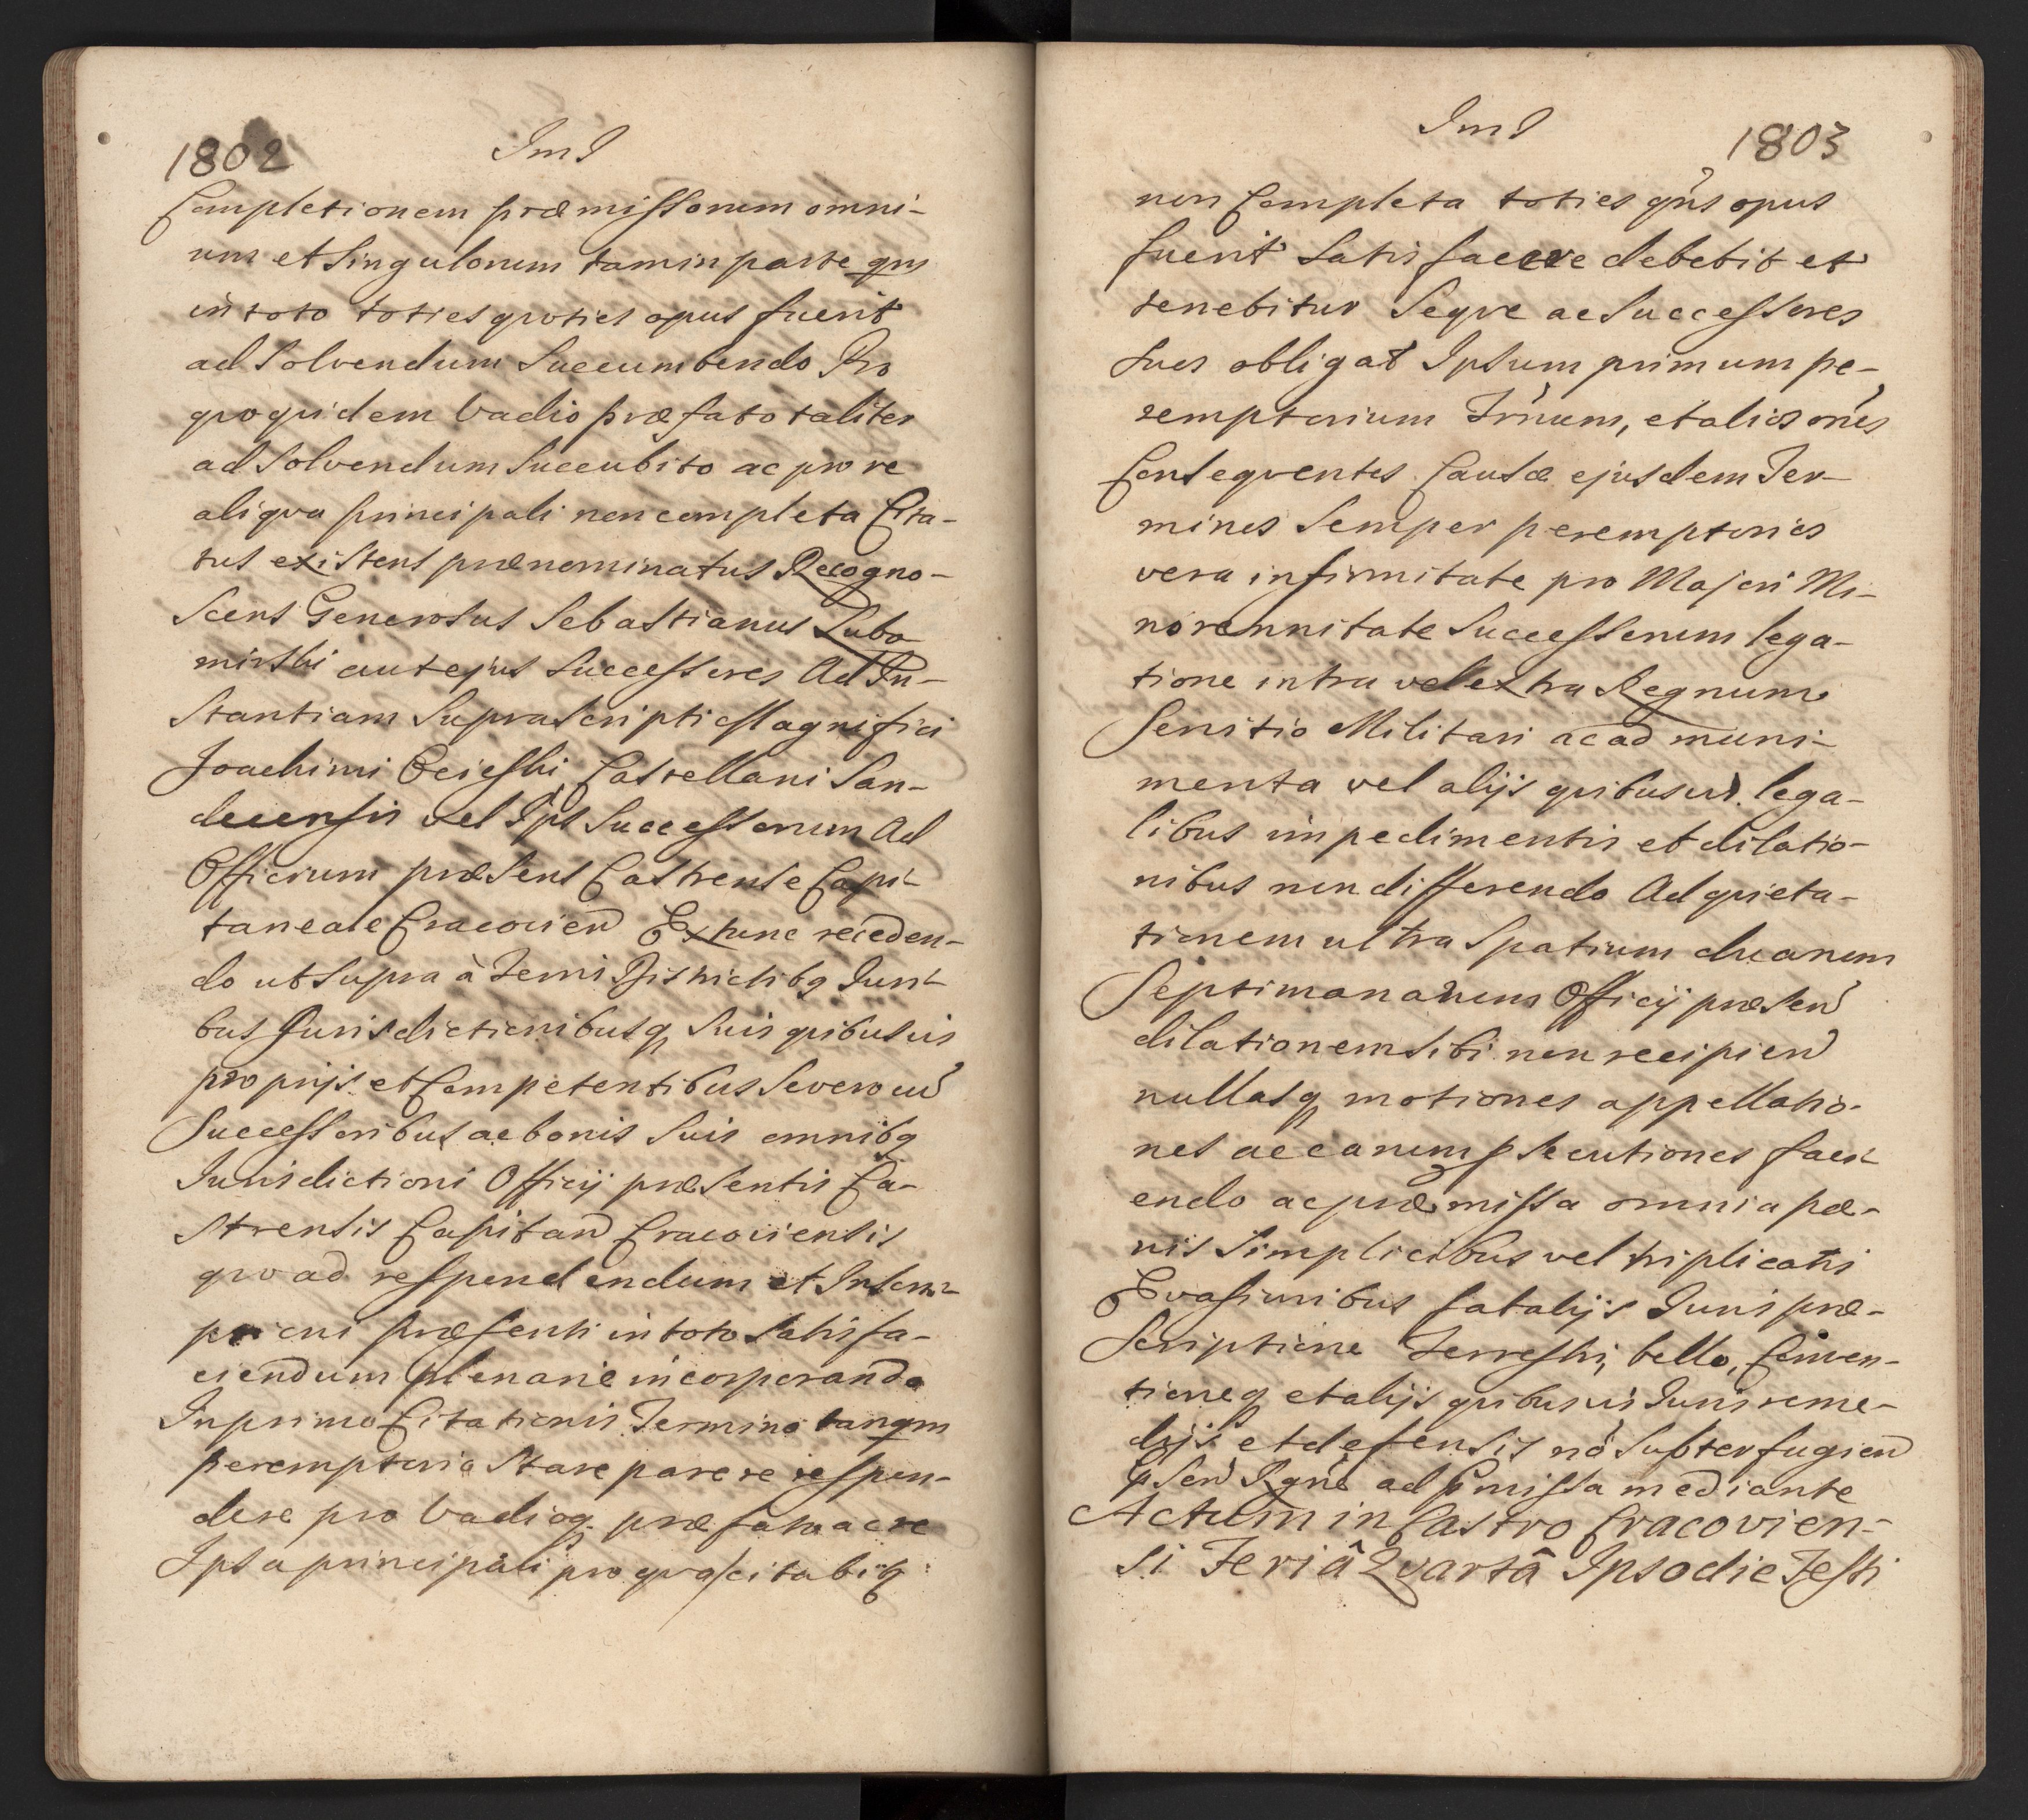 1802
Jms
Completionem præmissorum omni-
um et Singulorum tam in parte qm
in toto toties quoties opus fuerit
ad Solvendum Succumbendo Pro
quo quidem Vadio præfato taliter
ad Solvendum Succubito ac pro re
aliqva principali non completa Cita-
tus existens prænominatus Recogno-
Scens Generosus Sebastianus Lubo
mirski aut ejus Successores Ad In-
Stantiam Suprascripti Magnifici
Joachimi Ocieski, Castellani San-
decensis vel Ips Successorum Ad
Officium præsens Castrense Capi-
taneale Cracovien Extunc receden-
do ut Supra à Terris Districtibq Juri-
bus Jurisdictionibusq Suis quibusvis
proprijs et Competentibus Se vero cu
Successoribus ac bonis Suis omnibq
Jurisdictioni Officij præsentis Ca-
strensis Capitan Cracoviensis
quoad respondendum et Inscri-
pcioni præsenti in toto Satisfa-
ciendum plenarie incorporando
In primo Citationis Termino tanqm
peremptorio Stare parere respon-
dere pro Vadioq præfato ac re
Ipsa principali pro qva citabitq
Jms
1803
non Completa toties qns opus
fuerit Satisfacere debebit et
tenebitur Seqve ac Successores
Suos obligat Ipsum primum pe-
remptorium Trnum, et alios ones
Conseqventes Causæ ejusdem Ter-
minos Semper peremptorios
vera infirmitate pro Majori Mi-
norennitate Successorum lega-
tione intra vel extra Regnum
Servitio Militari ac ad muni-
menta vel alijs quibusvis lega-
libus impedimentis et dilatio-
nibus non differendo Ad quieta-
tionem ultra Spatium duarum
Septimanarum Officij præsen
dilationem Sibi non recipien
nullasq motiones appellatio-
nes ac earum psecutiones faci-
endo ac præmissa omnia pæ-
nis Simplicibus vel triplicatis
Evasionibus fatalijs Juris præ-
Scriptione Terrestri, bello, Conven-
tioneq et alijs quibusvis Juris reme-
dijs et defensis nō Subterfugien
pSen Rgne ad pmissa mediante
Actum in Castro Cracovien-
si Feriâ Qvartâ Ipso die Festi